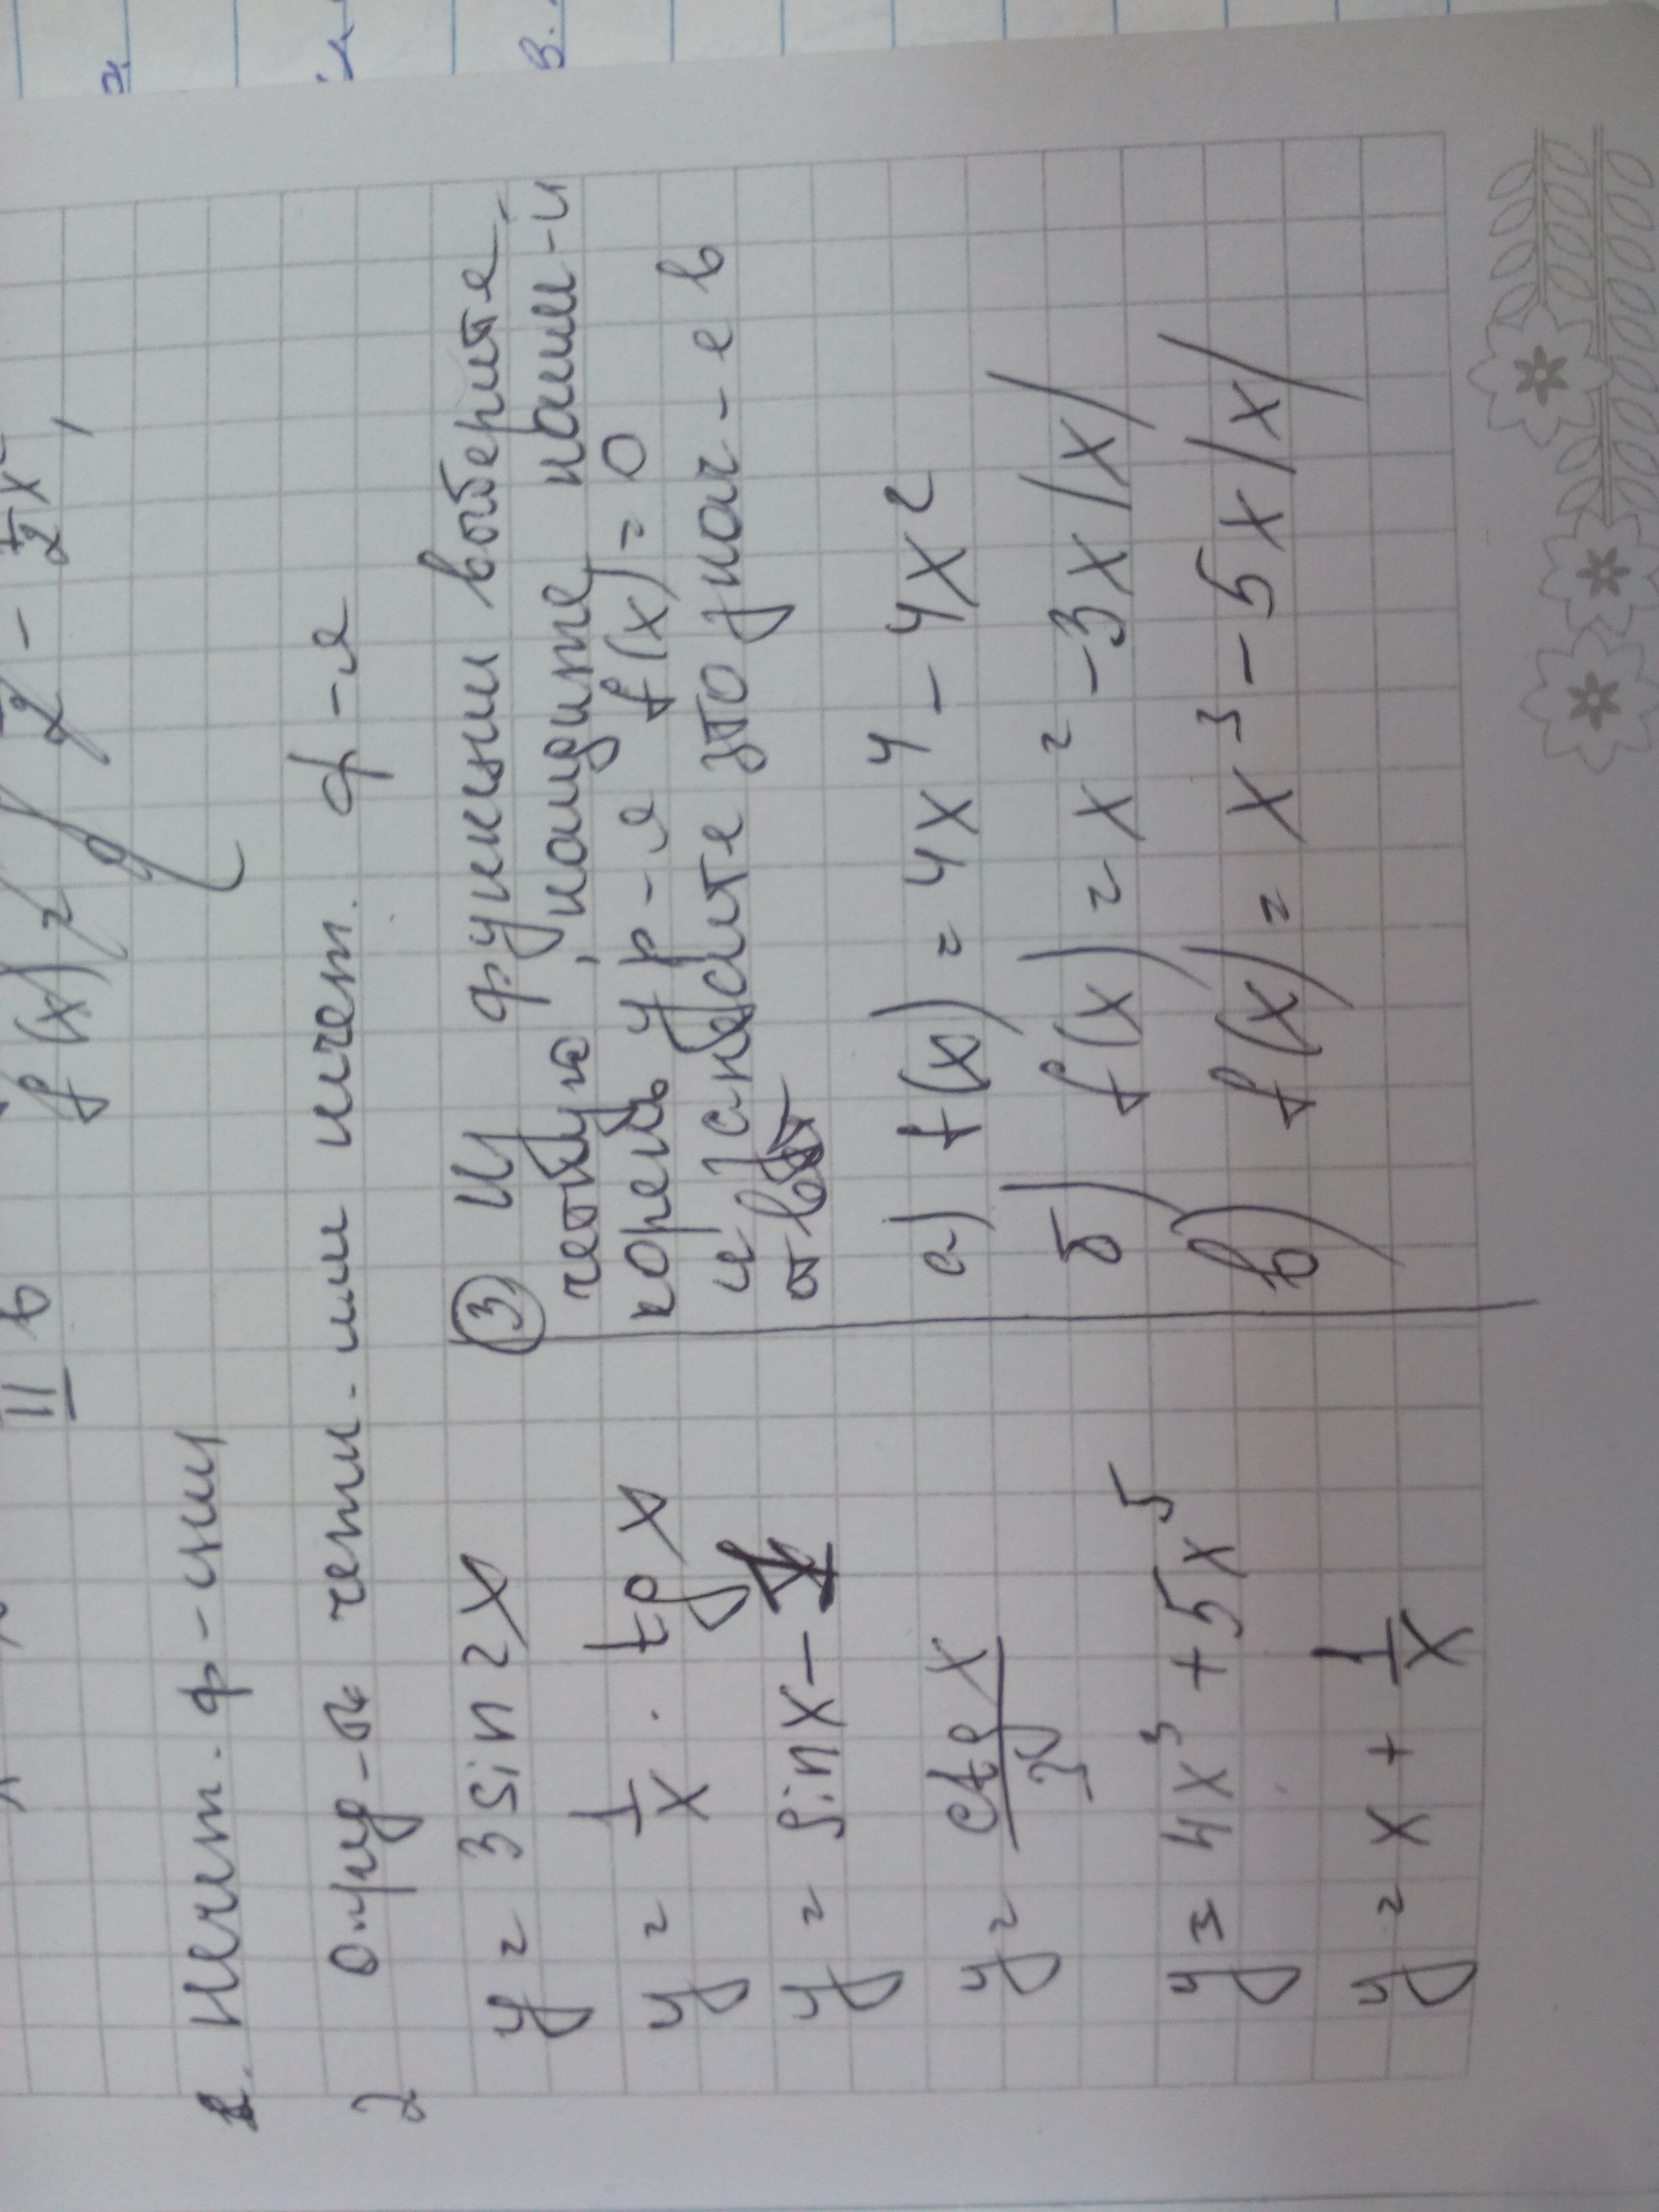 f(x) =
II в
1. Нечет. ф-ции
2 опред-ть четн. или нечет. ф-я
y = 3 sin 2x
y = 1/x · tg x
y = sin x -
y = ctg x
y = 4x³ + 5x⁵
y = x + 1/x
③ Из функции выберите
четную, найдите наим-й
корень ур-я f(x) = 0
и запишите это знач-е в
ответ
а) f(x) = 4x⁴ - 4x²
б) f(x) = x² - 3x|x|
в) f(x) = x³ - 5x|x|